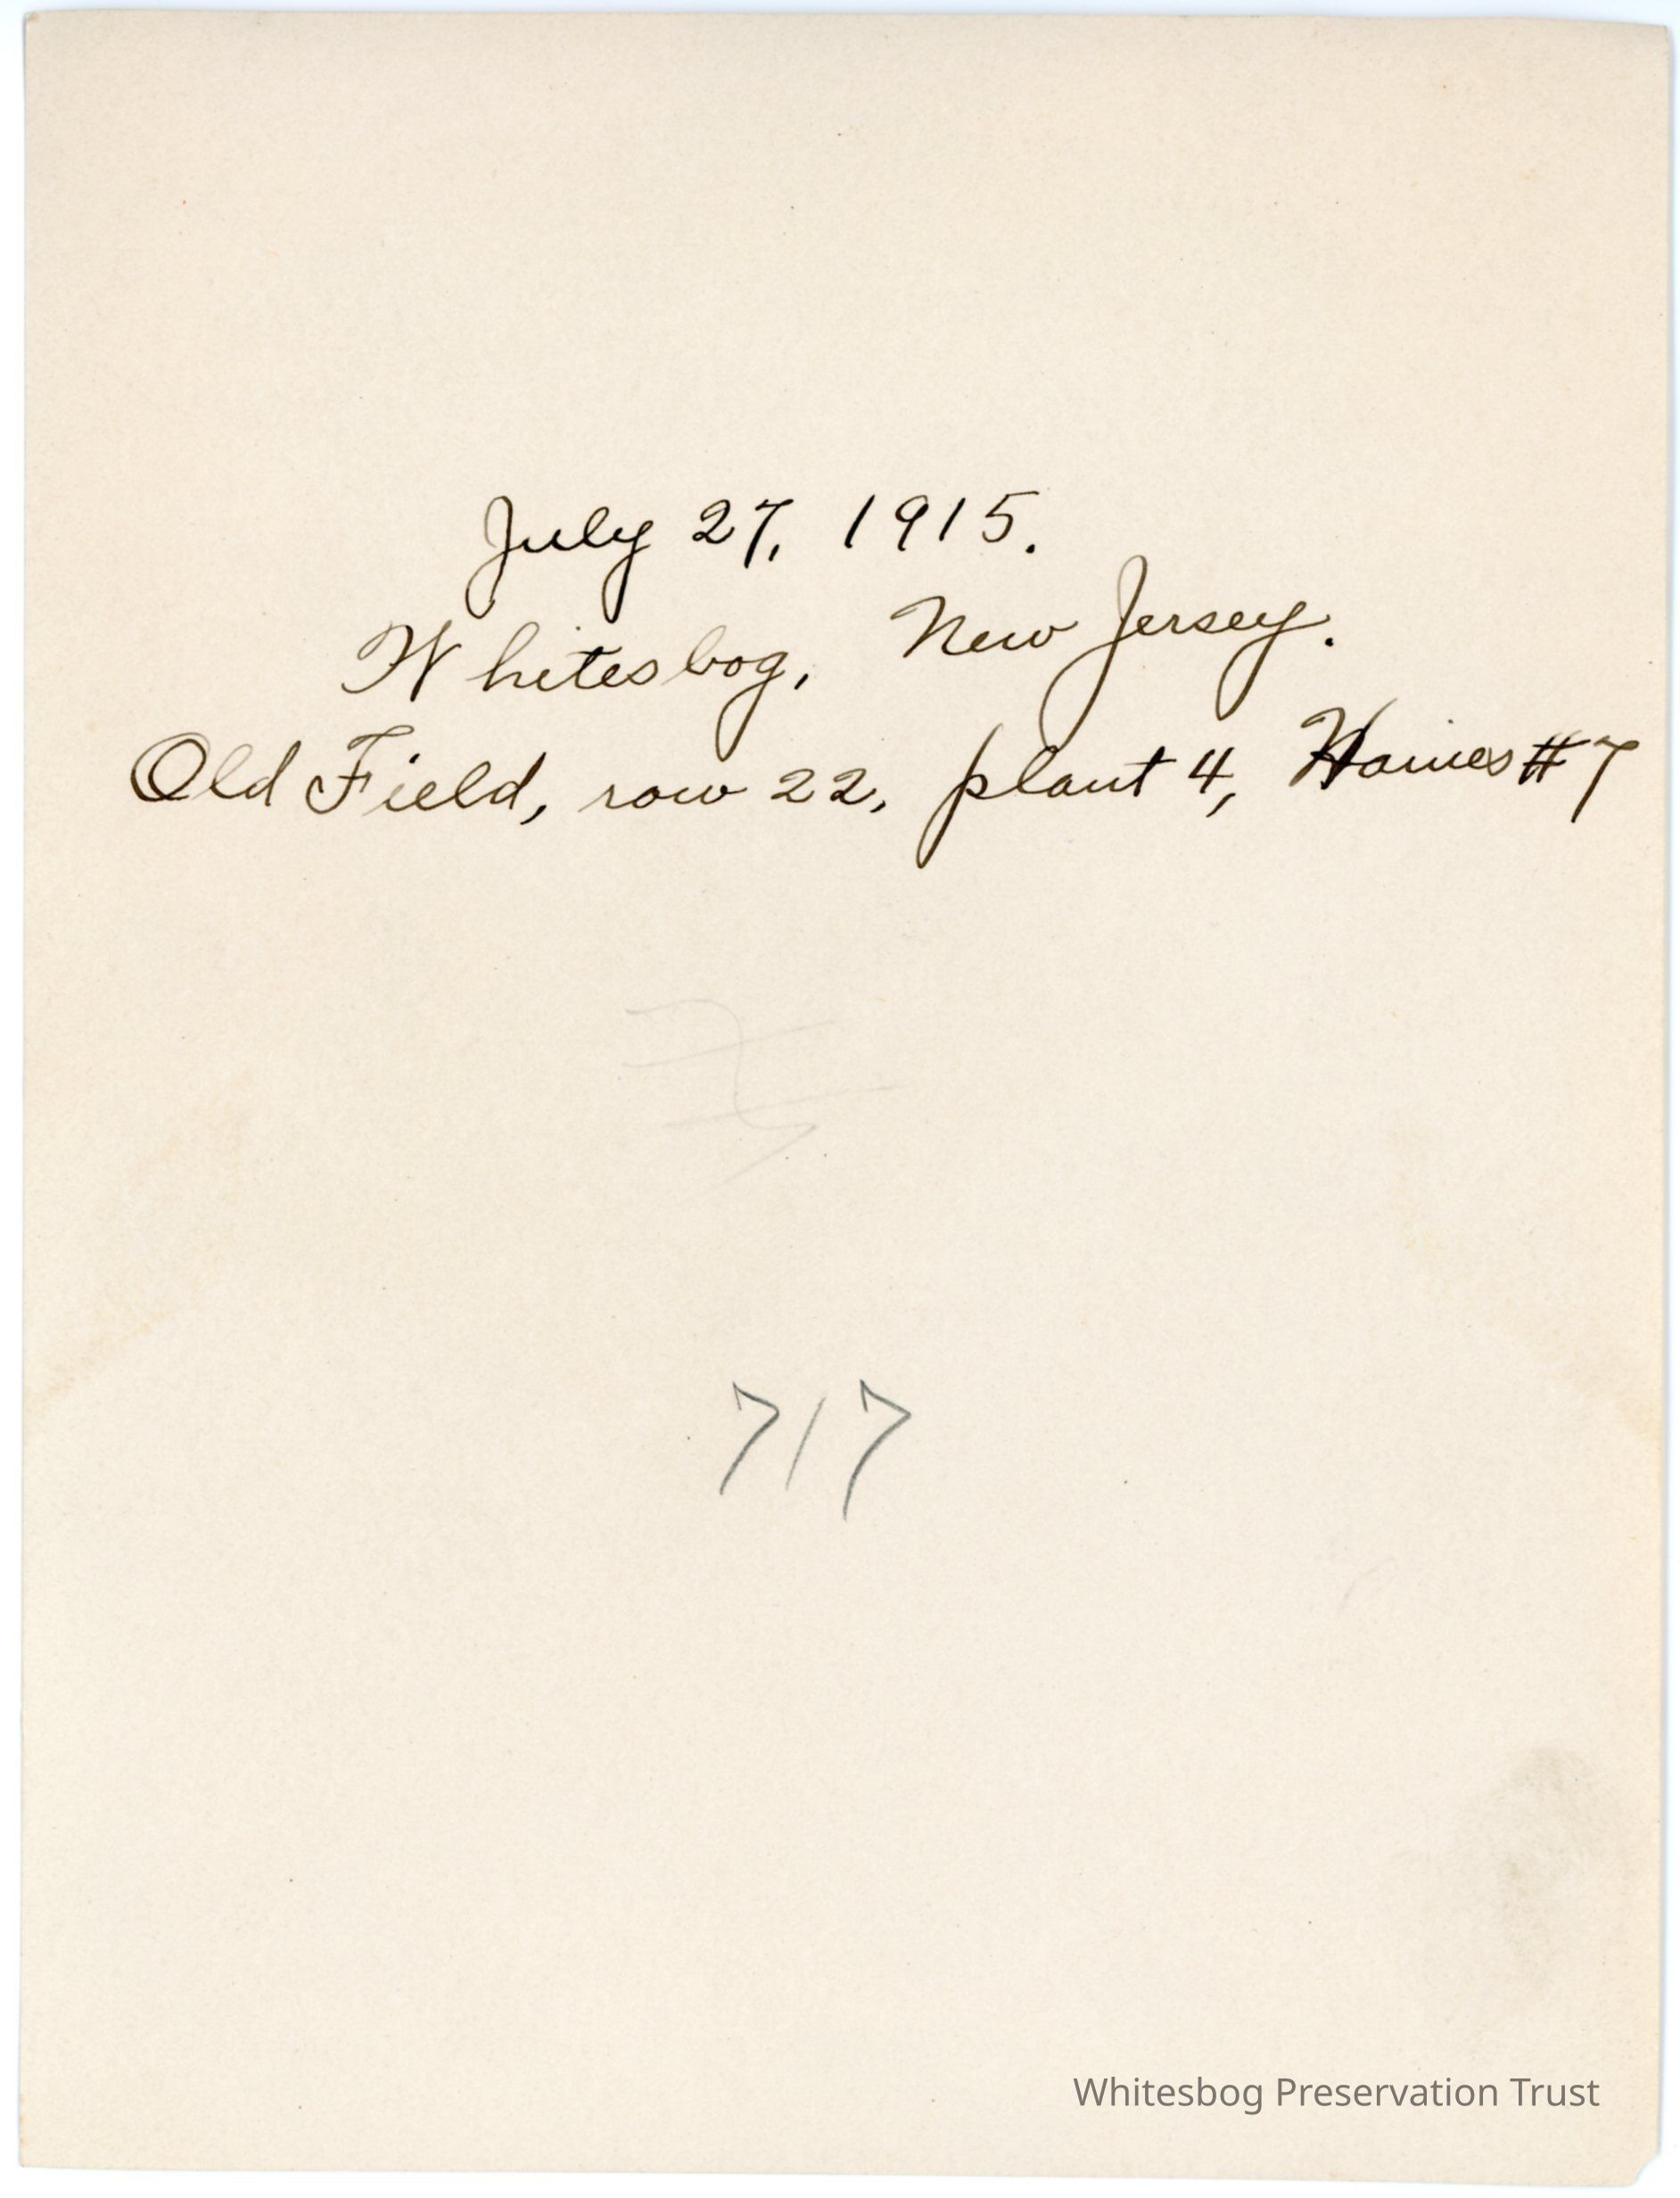 July 27, 1915.
Whitesbog, New Jersey.
Old Field, row 22, plant 4, Haines #7
717
Whitesbog Preservation Trust